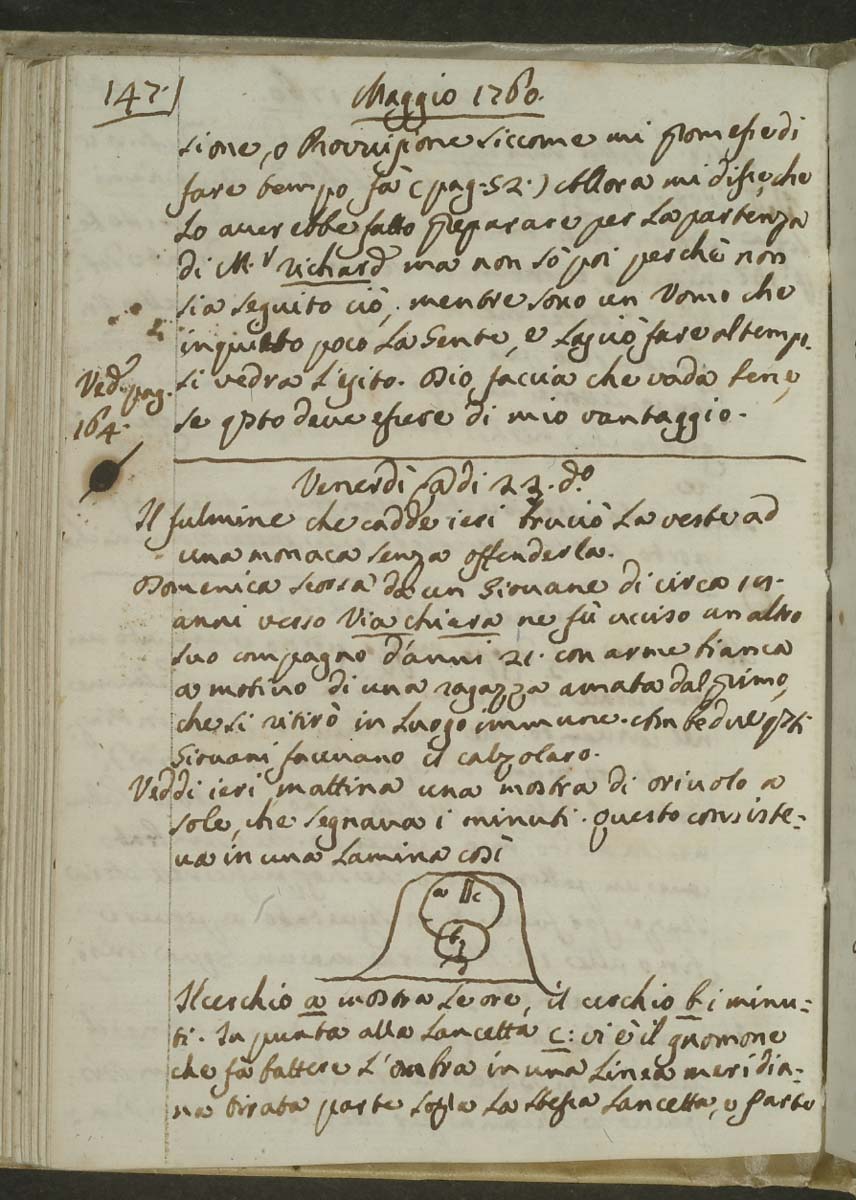 147.)
Maggio 1760.
sione, o Provvisione siccome mi promesse di
fare tempo fà (pag. 52.) Allora mi disse, che
Lo averebbe fatto preparare per La partenza
di M.r Richard ma non sò poi perchè non
sia seguito ciò, mentre sono un Uomo che
inquieto poco La Gente, e Lascio fare al temp.
Si vedrà L'esito. Dio faccia che vada bene,
se qsto deve essere di mio vantaggio.
Ved. pag.
164.
Venerdì adi 23. do
Il fulmine che cadde ieri bruciò La veste ad
una monaca senza offenderla.
Domenica scorsa da un Giovane di circa 19.
anni verso Via chiara ne fù ucciso un altro
suo compagno d'anni 21. con arme bianca
a motivo di una ragazza amata dal primo,
che si ritirò in Luogo immune. Ambedue qsti
Giovani facevano il calzolaro.
Veddi ieri mattina una mostra di oriuolo a
sole, che segnava i minuti. Questo consiste-
va in una Lamina così
a c
b
Il cerchio a mostra Le ore, il cerchio b i minu-
ti. In punta alla Lancetta c: vi è il gnomone
che fà battere L'ombra in una Linea meridia-
na tirata parte sopra La stessa Lancetta, e parte